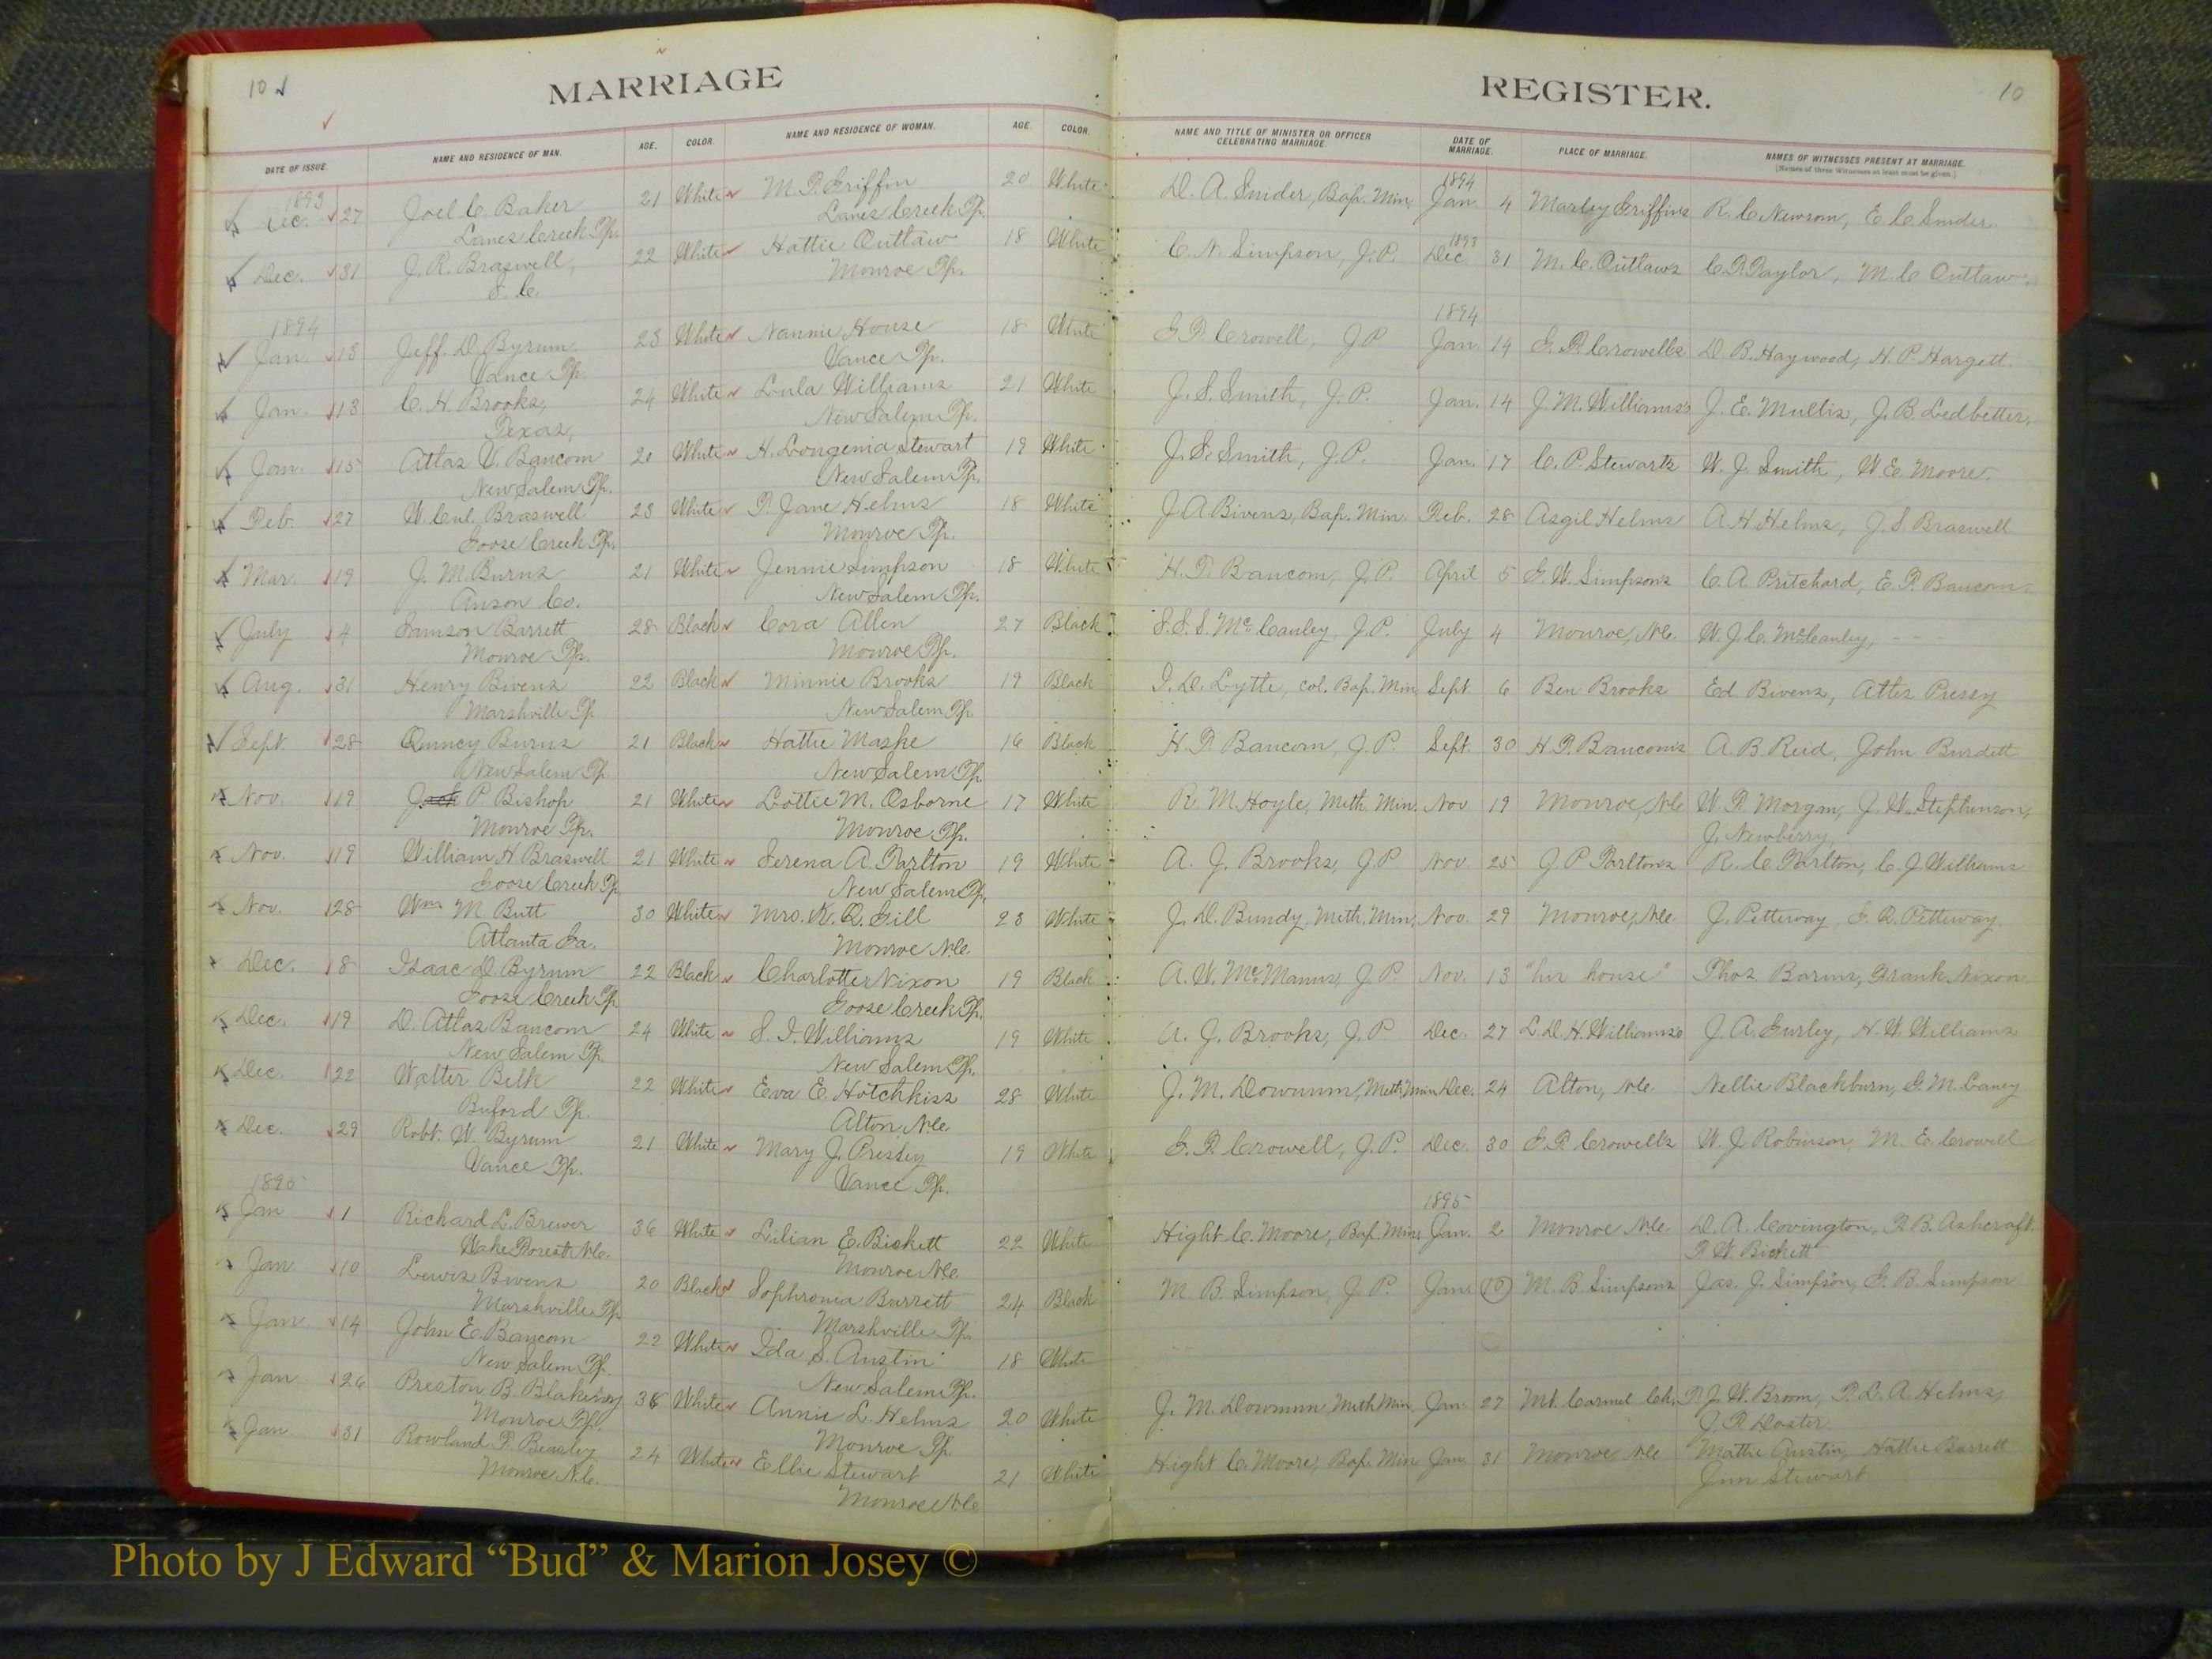 10
MARRIAGE
DATE OF ISSUE.
NAME AND RESIDENCE OF MAN.
AGE.
COLOR.
NAME AND RESIDENCE OF WOMAN.
AGE.
COLOR.
1893
Dec. 27 Joel C. Baker 21 White M. P. Griffin 20 White
Lanes Creek Tp. Lanes Creek Tp.
Dec. 31 J. R. Braswell, 22 White Hattie Outlaw 18 White
S. C. Monroe Tp.
1894
Jan. 13 Jeff. D. Byrum. 23 White Nannie House 18 White
Vance Tp. Vance Tp.
Jan. 13 C. H. Brooks, 24 White Lula Williams 21 White
Texas, New Salem Tp.
Jan. 15 Atlas V. Baucom 20 White H. Longenia Stewart 19 White
New Salem Tp. New Salem Tp.
Feb. 27 W. Braswell 23 White T. Jane Helms 18 White
Goose Creek Tp. Monroe Tp.
Mar. 19 J. M. Burns 21 White Jennie Simpson 18 White
Anson Co. New Salem Tp.
July 4 Samson Barrett 28 Black Cora Allen 27 Black
Monroe Tp. Monroe Tp.
Aug. 31 Henry Bivens 22 Black Minnie Brooks 19 Black
Marshville Tp. New Salem Tp.
Sept. 28 Quincy Burns 21 Black Hattie Maske 16 Black
New Salem Tp. New Salem Tp.
Nov. 19 Jack P. Bishop 21 White Lottie M. Osborne 17 White
Monroe Tp. Monroe Tp.
Nov. 19 William H Braswell 21 White Serena A. Tarlton 19 White
Goose Creek Tp. New Salem Tp.
Nov. 28 Wm M Butt 30 White Mrs. K. Q. Gill 23 White
Atlanta Ga. Monroe N.C.
Dec. 8 Isaac D. Byrum 22 Black Charlotte Nixon 19 Black
Goose Creek Tp. Goose Creek Tp.
Dec. 19 D. Atlas Baucom 24 White S. I. Williams 19 White
New Salem Tp. New Salem Tp.
Dec. 22 Walter Belk 22 White Eva E. Hotchkiss 28 White
Buford Tp. Alton, N.C.
Dec. 29 Robt. W. Byrum 21 White Mary J. Pressley 19 White
Vance Tp. Vance Tp.
1895
Jan 1 Richard L. Brewer 36 White Lilian E. Bickett 22 White
Wake Forest N.C. Monroe N.C.
Jan. 10 Lewis Bivens 20 Black Sophronia Barrett 24 Black
Marshville Tp. Marshville Tp.
Jan 14 John E. Baucom 22 White Ida S. Austin 18 White
New Salem Tp. New Salem Tp.
Jan 26 Preston B. Blakeney White Annie L. Helms 20 White
Monroe Tp. Monroe Tp.
Jan 31 Rowland F. Beasley 24 White Ellie Stewart 21 White
Monroe N.C. Monroe N.C.
REGISTER.
10
NAME AND TITLE OF MINISTER OR OFFICER CELEBRATING MARRIAGE.
DATE OF MARRIAGE.
PLACE OF MARRIAGE.
NAMES OF WITNESSES PRESENT AT MARRIAGE.
[Names of three Witnesses at least must be given.]
1894
D. A. Snider, Bap. Min. Jan. 4 Marley Griffins R. C. Newsom, E. C. Snider.
1893
C. N. Simpson, J. P. Dec 31 M. C. Outlaws C. T. Taylor, M. C. Outlaw
1894
G. T. Crowell, J P Jan. 14 G. T. Crowells D. B. Haywood, H. P. Hargett.
J. S. Smith, J. P. Jan. 14 J. M. Williams's J. E. Mullis, J. B. Ledbetter.
J. S. Smith, J. P. Jan. 17 C. P. Stewarts W. J. Smith, W. E. Moore.
J A Bivens, Bap. Min. Feb. 28 Asgil Helms A. H. Helms, J. S. Braswell
H. T. Baucom, J. P. April 5 G. W. Simpsons C. A. Pritchard, E. T. Baucom.
S. S. S. McCauley, J. P. July 4 Monroe, N.C. W. J. C. McCauley, - - -
I. D. Lytle, col. Bap. Min Sept 6 Ben Brooks Ed. Bivens,
H. T. Baucom, J. P. Sept. 30 H. T. Baucom's A. B. Reid, John Burdett
R. M. Hoyle, Meth. Min. Nov 19 Monroe, N.C. W. T. Morgan, J. W. Stephenson,
J. Newberry,
A. J. Brooks, J. P Nov. 25 J. P Tarltons R. C Tarlton, C. J Williams
J. D. Bundy, Meth. Min. Nov. 29 Monroe, N.C. J. Petteway, Petteway.
A. W. McManus, J. P. Nov. 13 "hir house" Thos. Frank Nixon
A. J. Brooks, J. P Dec. 27 L. D. H. Williams's J. A. Gurley, H. W. Williams
J. M. Downum, Meth. Min Dec. 24 Alton, N.C. Nellie Blackburn, G. M. Laney
G. T. Crowell, J. P. Dec. 30 G. T. Crowells W. J Robinson, M. E. Crowell
1895
Hight C. Moore, Bap. Min. Jan. 2 Monroe N.C. D. A. Covington, F. B. Ashcraft.
T. W. Bickett
M. B. Simpson, J. P. Jan. 10 M. B Simpsons Jas. J. Simpson, G. B. Simpson
J. M. Downum, Meth Min Jan. 27 Mt. Carmel Ch. J. W. Broom, T. L. A. Helms,
J. F. Doster.
Hight C. Moore, Bap. Min Jan. 31 Monroe, N.C. Mattie Austin, Hattie Barrett
Jim Stewart
Photo by J Edward “Bud” & Marion Josey ©